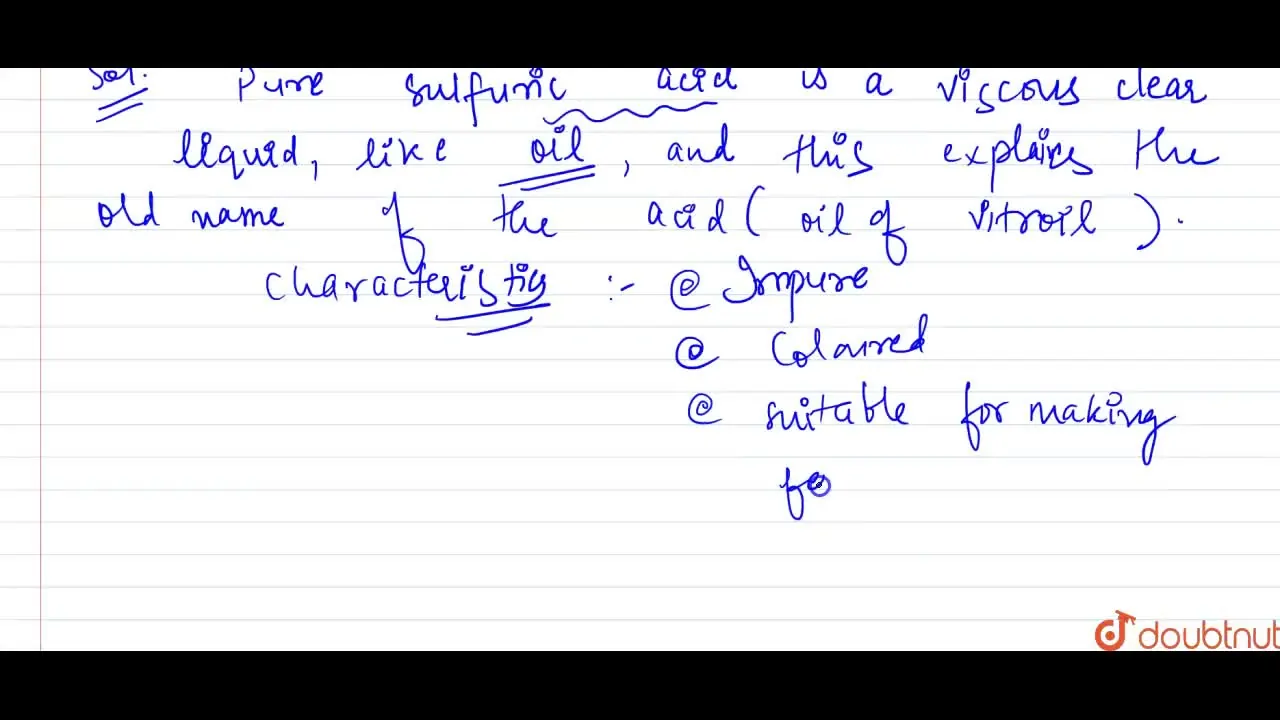 Sol. Pure sulfuric acid is a viscous clear
liquid, like oil, and this explains the
old name of the acid ( oil of vitroil ).
characteristics :- @ Impure
@ Coloured
@ suitable for making
fe
doubtnut